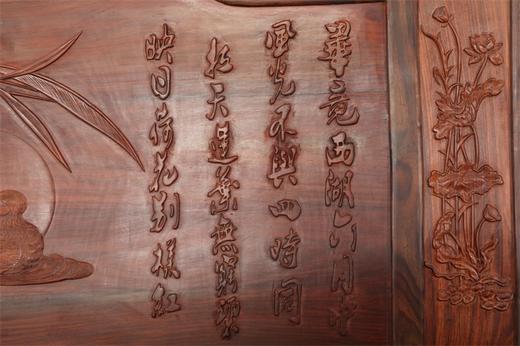 畢竟西湖六月中
風光不與四時同
接天蓮葉無窮碧
映日荷花別樣紅